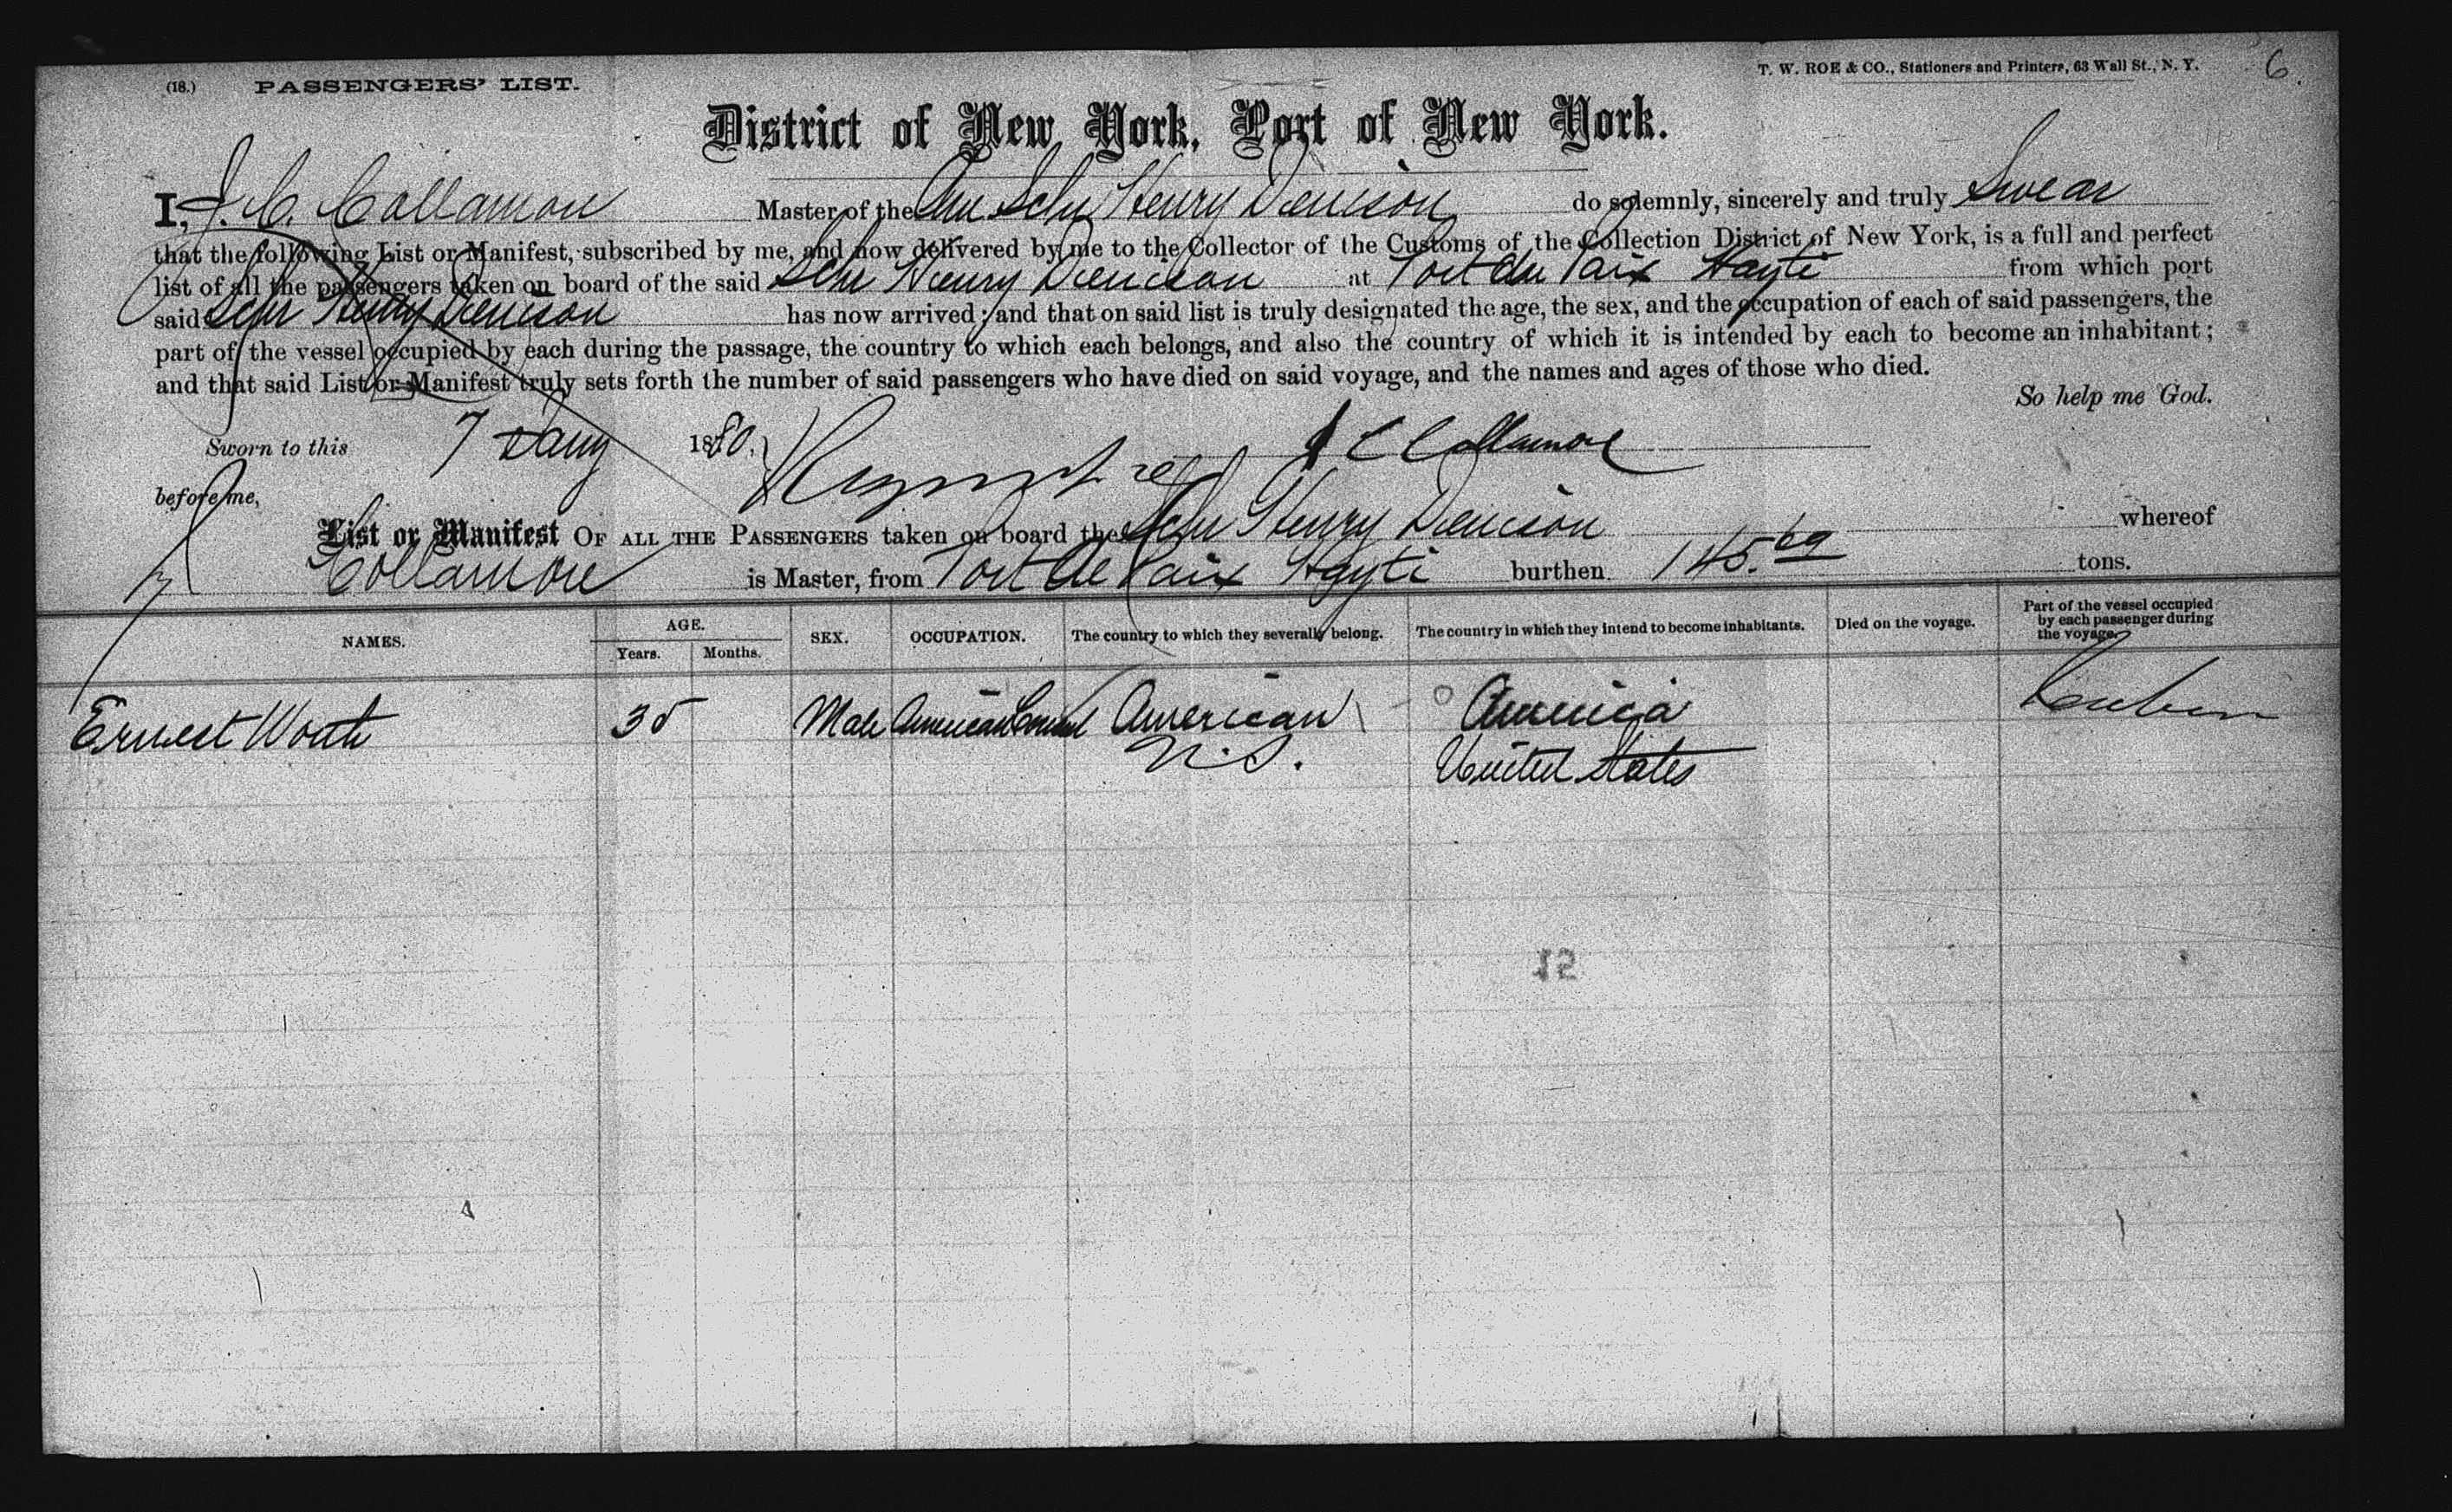 (18.) PASSENGERS' LIST.
T. W. ROE & CO., Stationers and Printers, 63 Wall St., N. Y. 6.
District of New York, Port of New York.
I, J. C. Collamore Master of the Am Schr Henry Denison do solemnly, sincerely and truly Swear
that the following List or Manifest, subscribed by me, and now delivered by me to the Collector of the Customs of the Collection District of New York, is a full and perfect
list of all the passengers taken on board of the said Schr Henry Denison at Port du Paix Hayti from which port
said Schr Henry Denison has now arrived; and that on said list is truly designated the age, the sex, and the occupation of each of said passengers, the
part of the vessel occupied by each during the passage, the country to which each belongs, and also the country of which it is intended by each to become an inhabitant;
and that said List or Manifest truly sets forth the number of said passengers who have died on said voyage, and the names and ages of those who died.
So help me God.
Sworn to this 7 Jany 1880. J C Collamore
before me,
List or Manifest OF ALL THE PASSENGERS taken on board the Schr Henry Denison whereof
Collamore is Master, from Port de Paix Hayti burthen 145.69 tons.
NAMES. AGE. Years. Months. SEX. OCCUPATION. The country to which they severally belong. The country in which they intend to become inhabitants. Died on the voyage. Part of the vessel occupied by each passenger during the voyage.
Ernest Worth 35 Male American Consul American America
U.S. United States
12